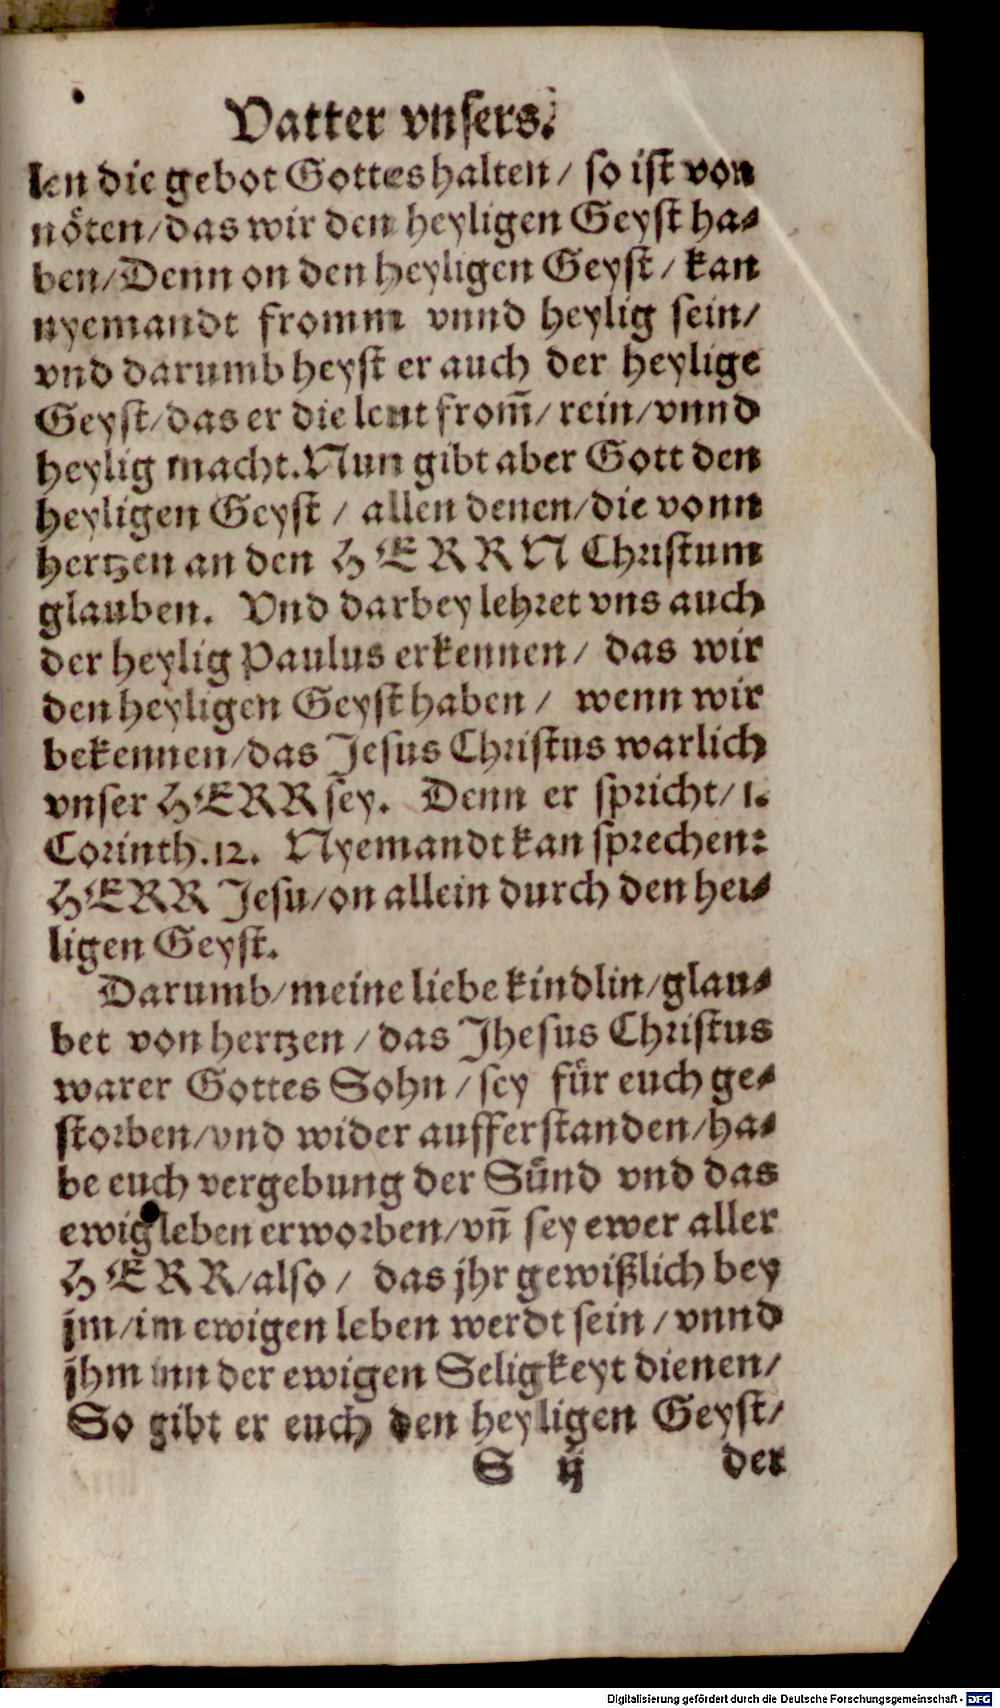 Vatter vnsers.
len die gebot Gottes halten/ so ist von
nöten/das wir den heyligen Geyst ha⸗
ben/Denn on den heyligen Geyst/ kan
nyemandt fromm vnnd heylig sein/
vnd darumb heyst er auch der heylige
Geyst/das er die leut from̃/rein/vnnd
heylig macht. Nun gibt aber Gott den
heyligen Geyst / allen denen/die vonn
hertzen an den HERRN Christum
glauben. Vnd darbey lehret vns auch
der heylig Paulus erkennen/ das wir
den heyligen Geyst haben / wenn wir
bekennen/das Jesus Christus warlich
vnser HERR sey. Denn er spricht/1.
Corinth.12. Nyemandt kan sprechen:
HERR Jesu/on allein durch den hei⸗
ligen Geyst.
Darumb/meine liebe kindlin/glau⸗
bet von hertzen / das Jhesus Christus
warer Gottes Sohn / sey für euch ge⸗
storben/vnd wider aufferstanden/ha⸗
be euch vergebung der Sünd vnd das
ewig leben erworben/vñ sey ewer aller
HERR/also / das jhr gewißlich bey
jm/im ewigen leben werdt sein / vnnd
jhm inn der ewigen Seligkeyt dienen/
So gibt er euch den heyligen Geyst/
S ij der
Digitalisierung gefördert durch die Deutsche Forschungsgemeinschaft - DFG